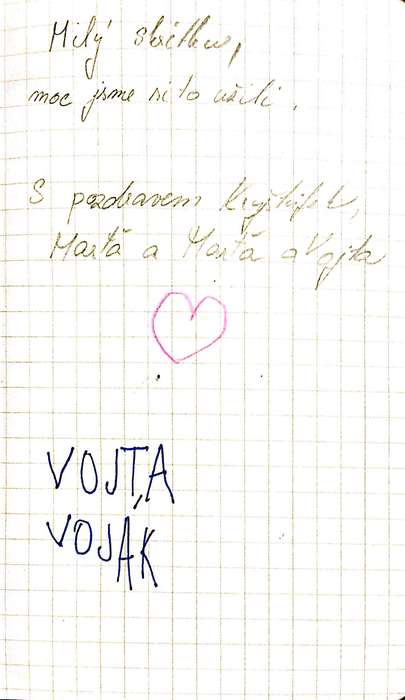 Milý skřítku,
moc jsme si to užili.
S pozdravem Kryštůfek,
Marťa a Marťa a Vojta
VOJTA
VOJÁK